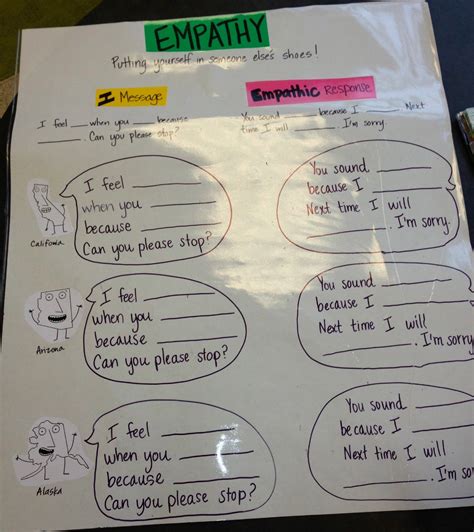 EMPATHY
Putting yourself in someone else's shoes!
I Message
I feel ___ when you ___ because
___. Can you please stop?
Empathic Response
You sound ___ because I ___. Next
time I will ___. I'm sorry.
I feel ___
when you ___
because ___
Can you please stop?
Califonia
You sound ___
because I ___
Next time I will
___. I'm sorry.
I feel ___
when you ___
because ___
Can you please stop?
Arizona
You sound ___
because I ___
Next time I will
___. I'm sorry
I feel ___
when you ___
because ___
Can you please stop?
Alaska
You sound ___
because I ___
Next time I will
___. I'm so